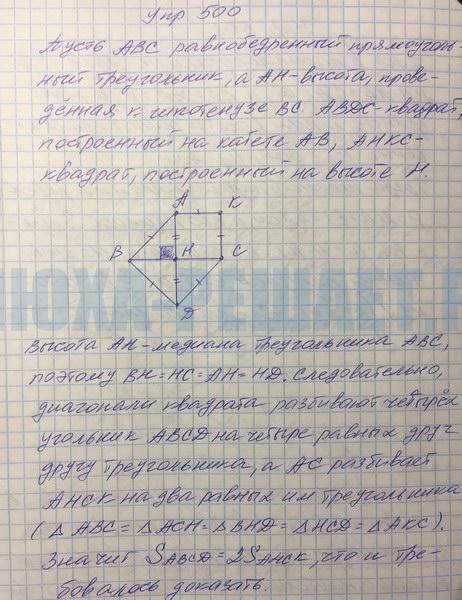 Упр 500
Пусть ABC равнобедренный прямоуголь-
ный треугольник, а AH-высота, прове-
дённая к гипотенузе BC. ABDC-квадрат,
построенный на катете AB, AHKC-
квадрат, построенный на высоте H.
A
K
B
H
C
D
ЮХА-РЕШАЕТ.
Высота AH-медиана треугольника ABC,
поэтому BH=HC=AH=HD. Следовательно,
диагонали квадрата разбивают четырёх
угольник ABCD на четыре равных друг
другу треугольника, а AC разбивает
AHCK на два равных им треугольника
(△ABC=△ACH=△BHD=△HCD=△AKC).
Значит SABCD=2SAHCK, что и тре-
бовалось доказать.